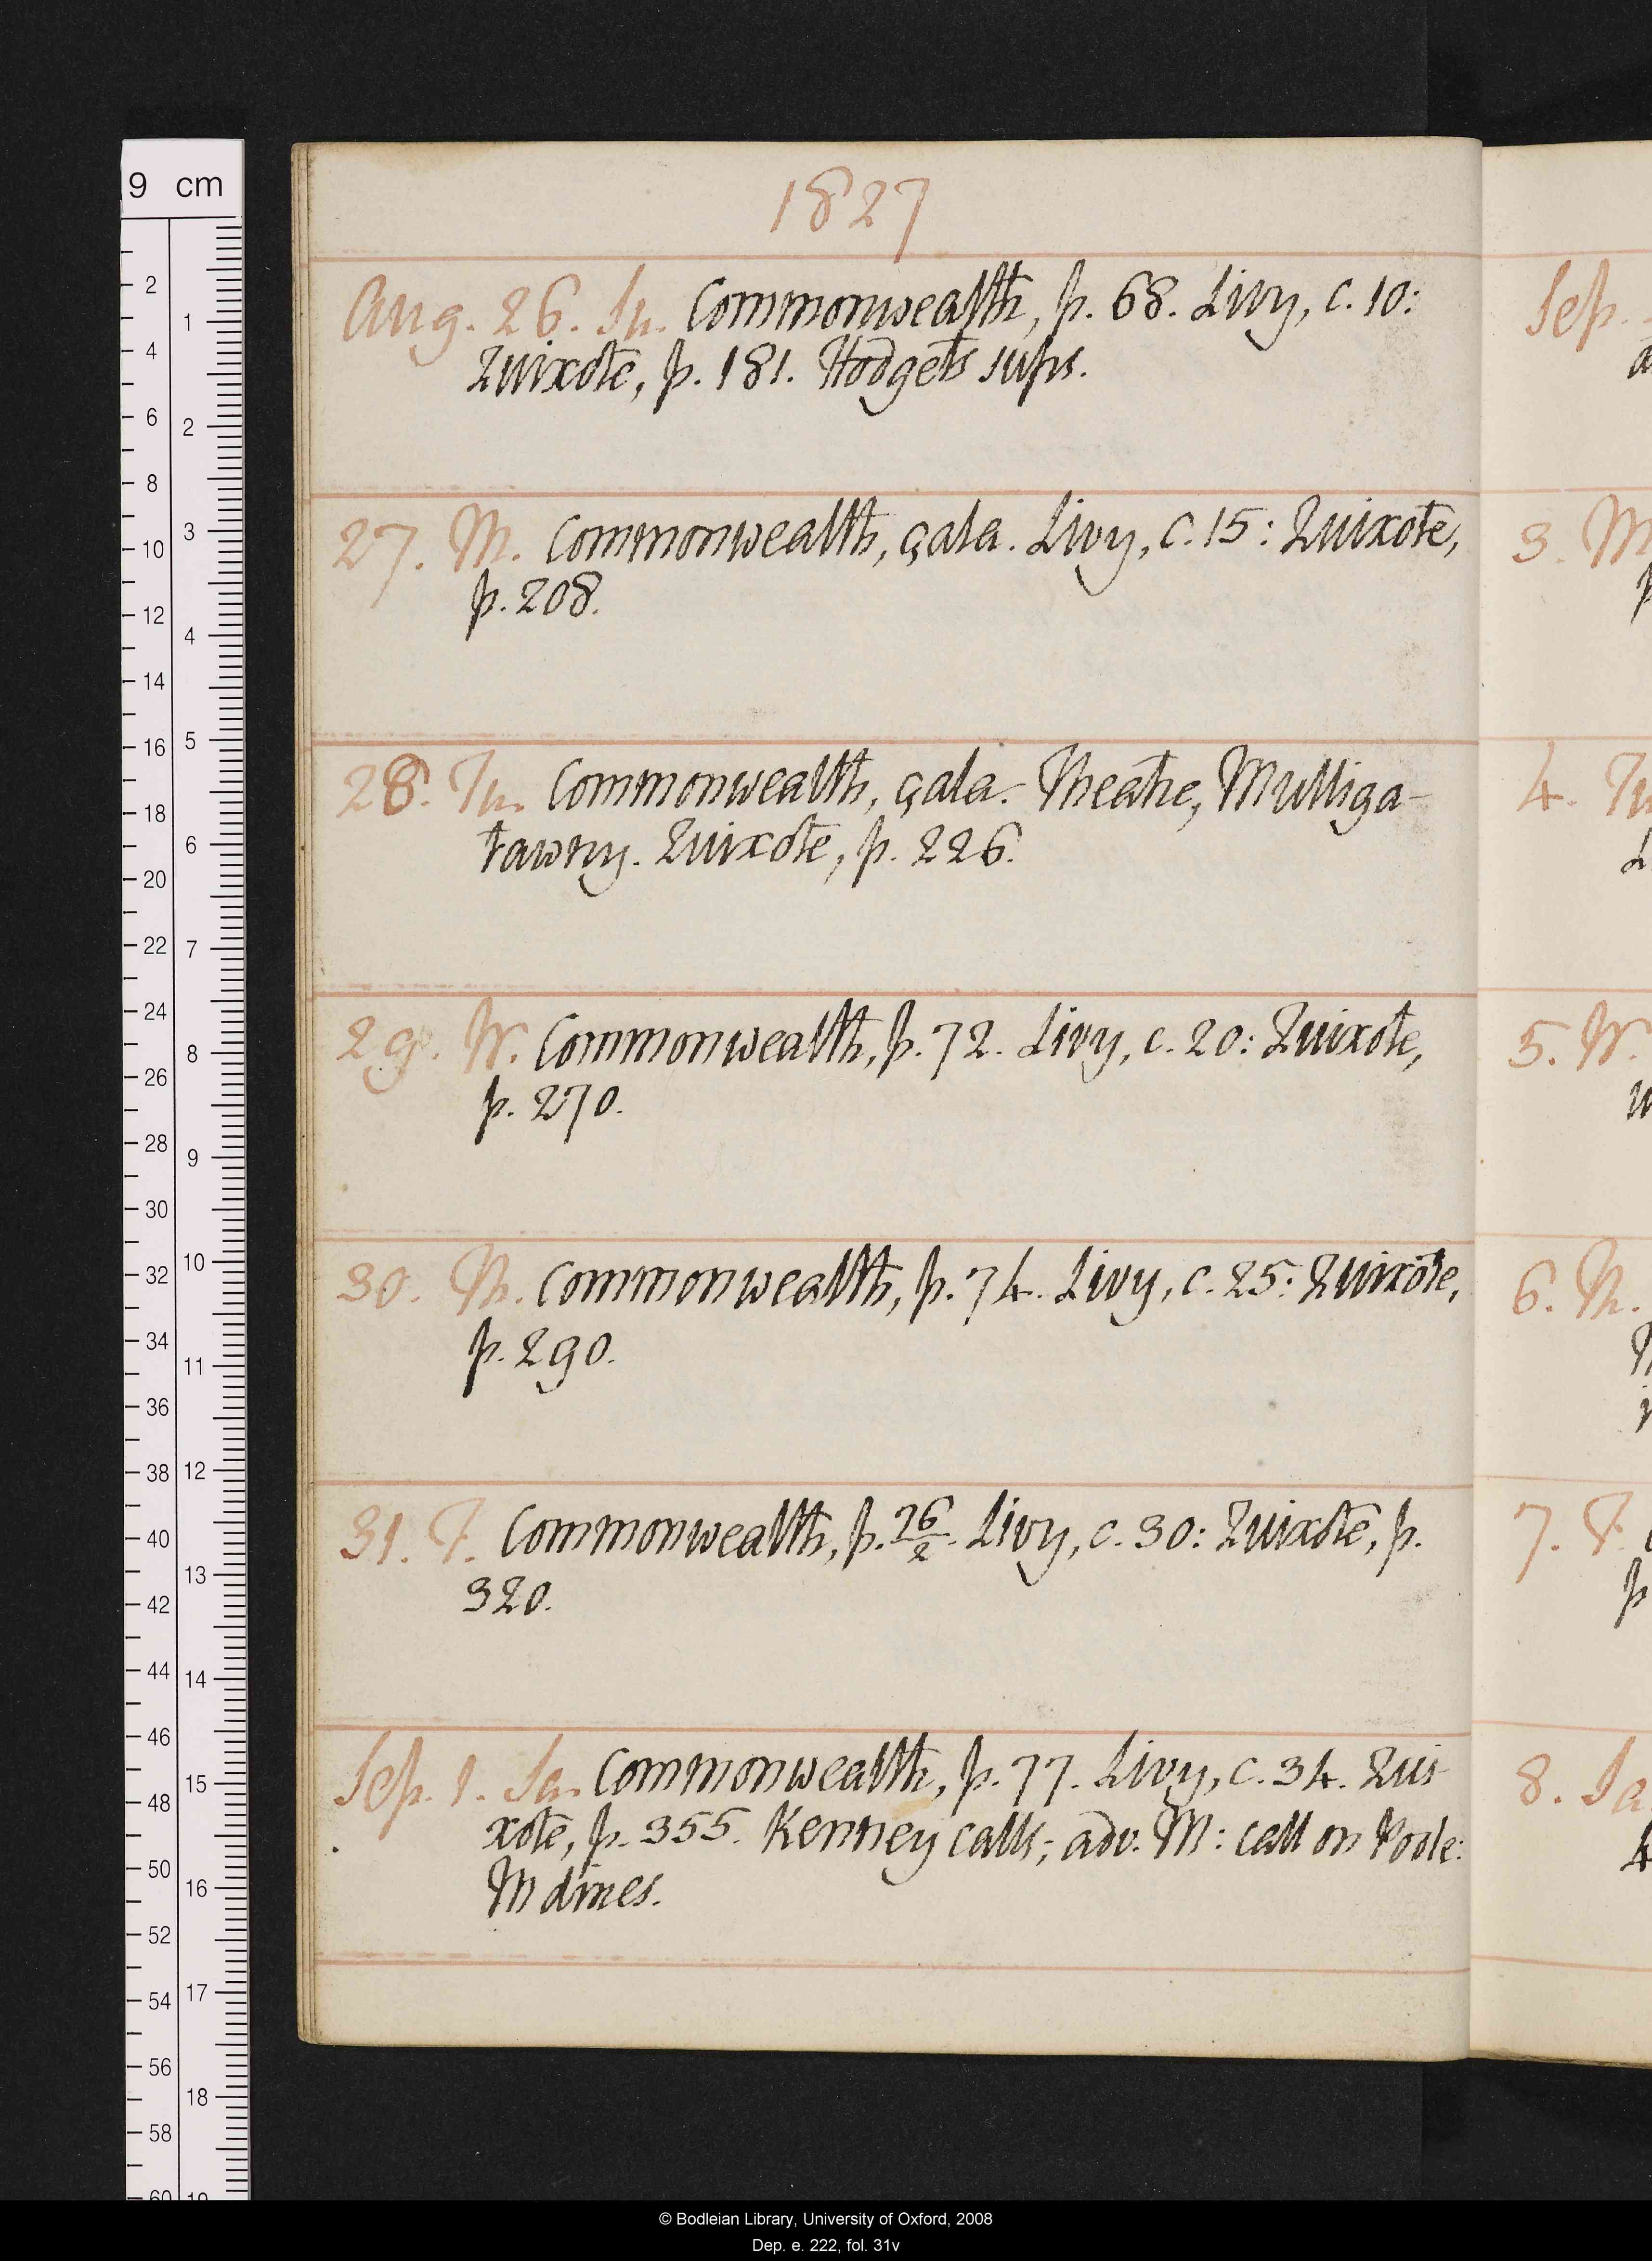 1827
Aug. 26. Su. Commonwealth, p. 68. Livy, c. 10:
Quixote, p. 181. Hodgets sups.
27. M. Commonwealth, çala. Livy, c. 15: Quixote,
p. 208.
28. Tu. Commonwealth, çala. Theatre, Mulliga-
tawny. Quixote, p. 226.
29. W. Commonwealth, p. 72. Livy, c. 20: Quixote,
p. 270.
30. Th. Commonwealth, p. 74. Livy, c. 25: Quixote,
p. 290.
31. F. Commonwealth, p. 76/2. Livy, c. 30: Quixote, p.
320.
Sep. 1. Sa. Commonwealth, p. 77. Livy, c. 34. Qui-
xote, p. 355. Kenney calls; adv. M: call on Poole:
M dines.
Sep.
3. M
4. Tu
5. W.
6. Th.
7. F.
p
8. Sa
9 cm
2
4
6
8
10
12
14
16
18
20
22
24
26
28
30
32
34
36
38
40
42
44
46
48
50
52
54
56
58
60
1
2
3
4
5
6
7
8
9
10
11
12
13
14
15
16
17
18
19
© Bodleian Library, University of Oxford, 2008
Dep. e. 222, fol. 31v